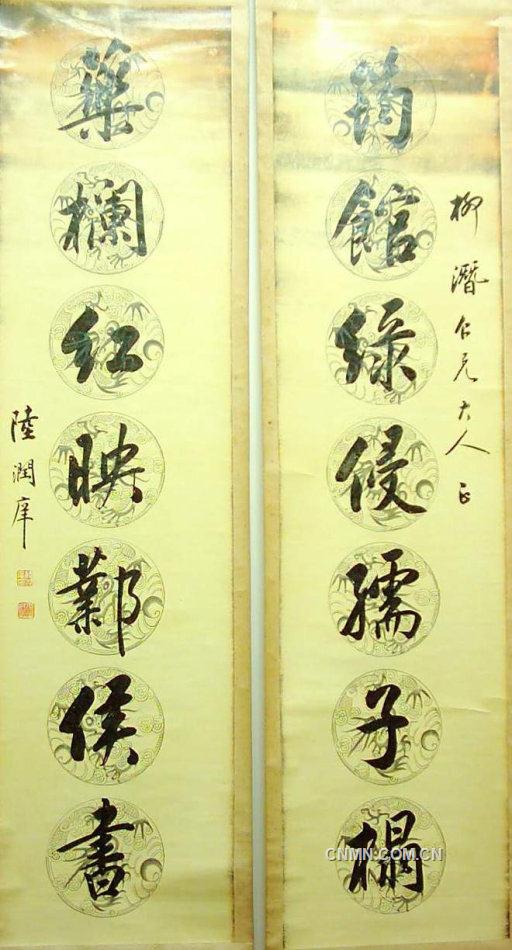 柳潛仁兄大人正
筠館綠侵孺子榻
藥欄紅映鄴侯書
陸潤庠
CNMN.COM.CN